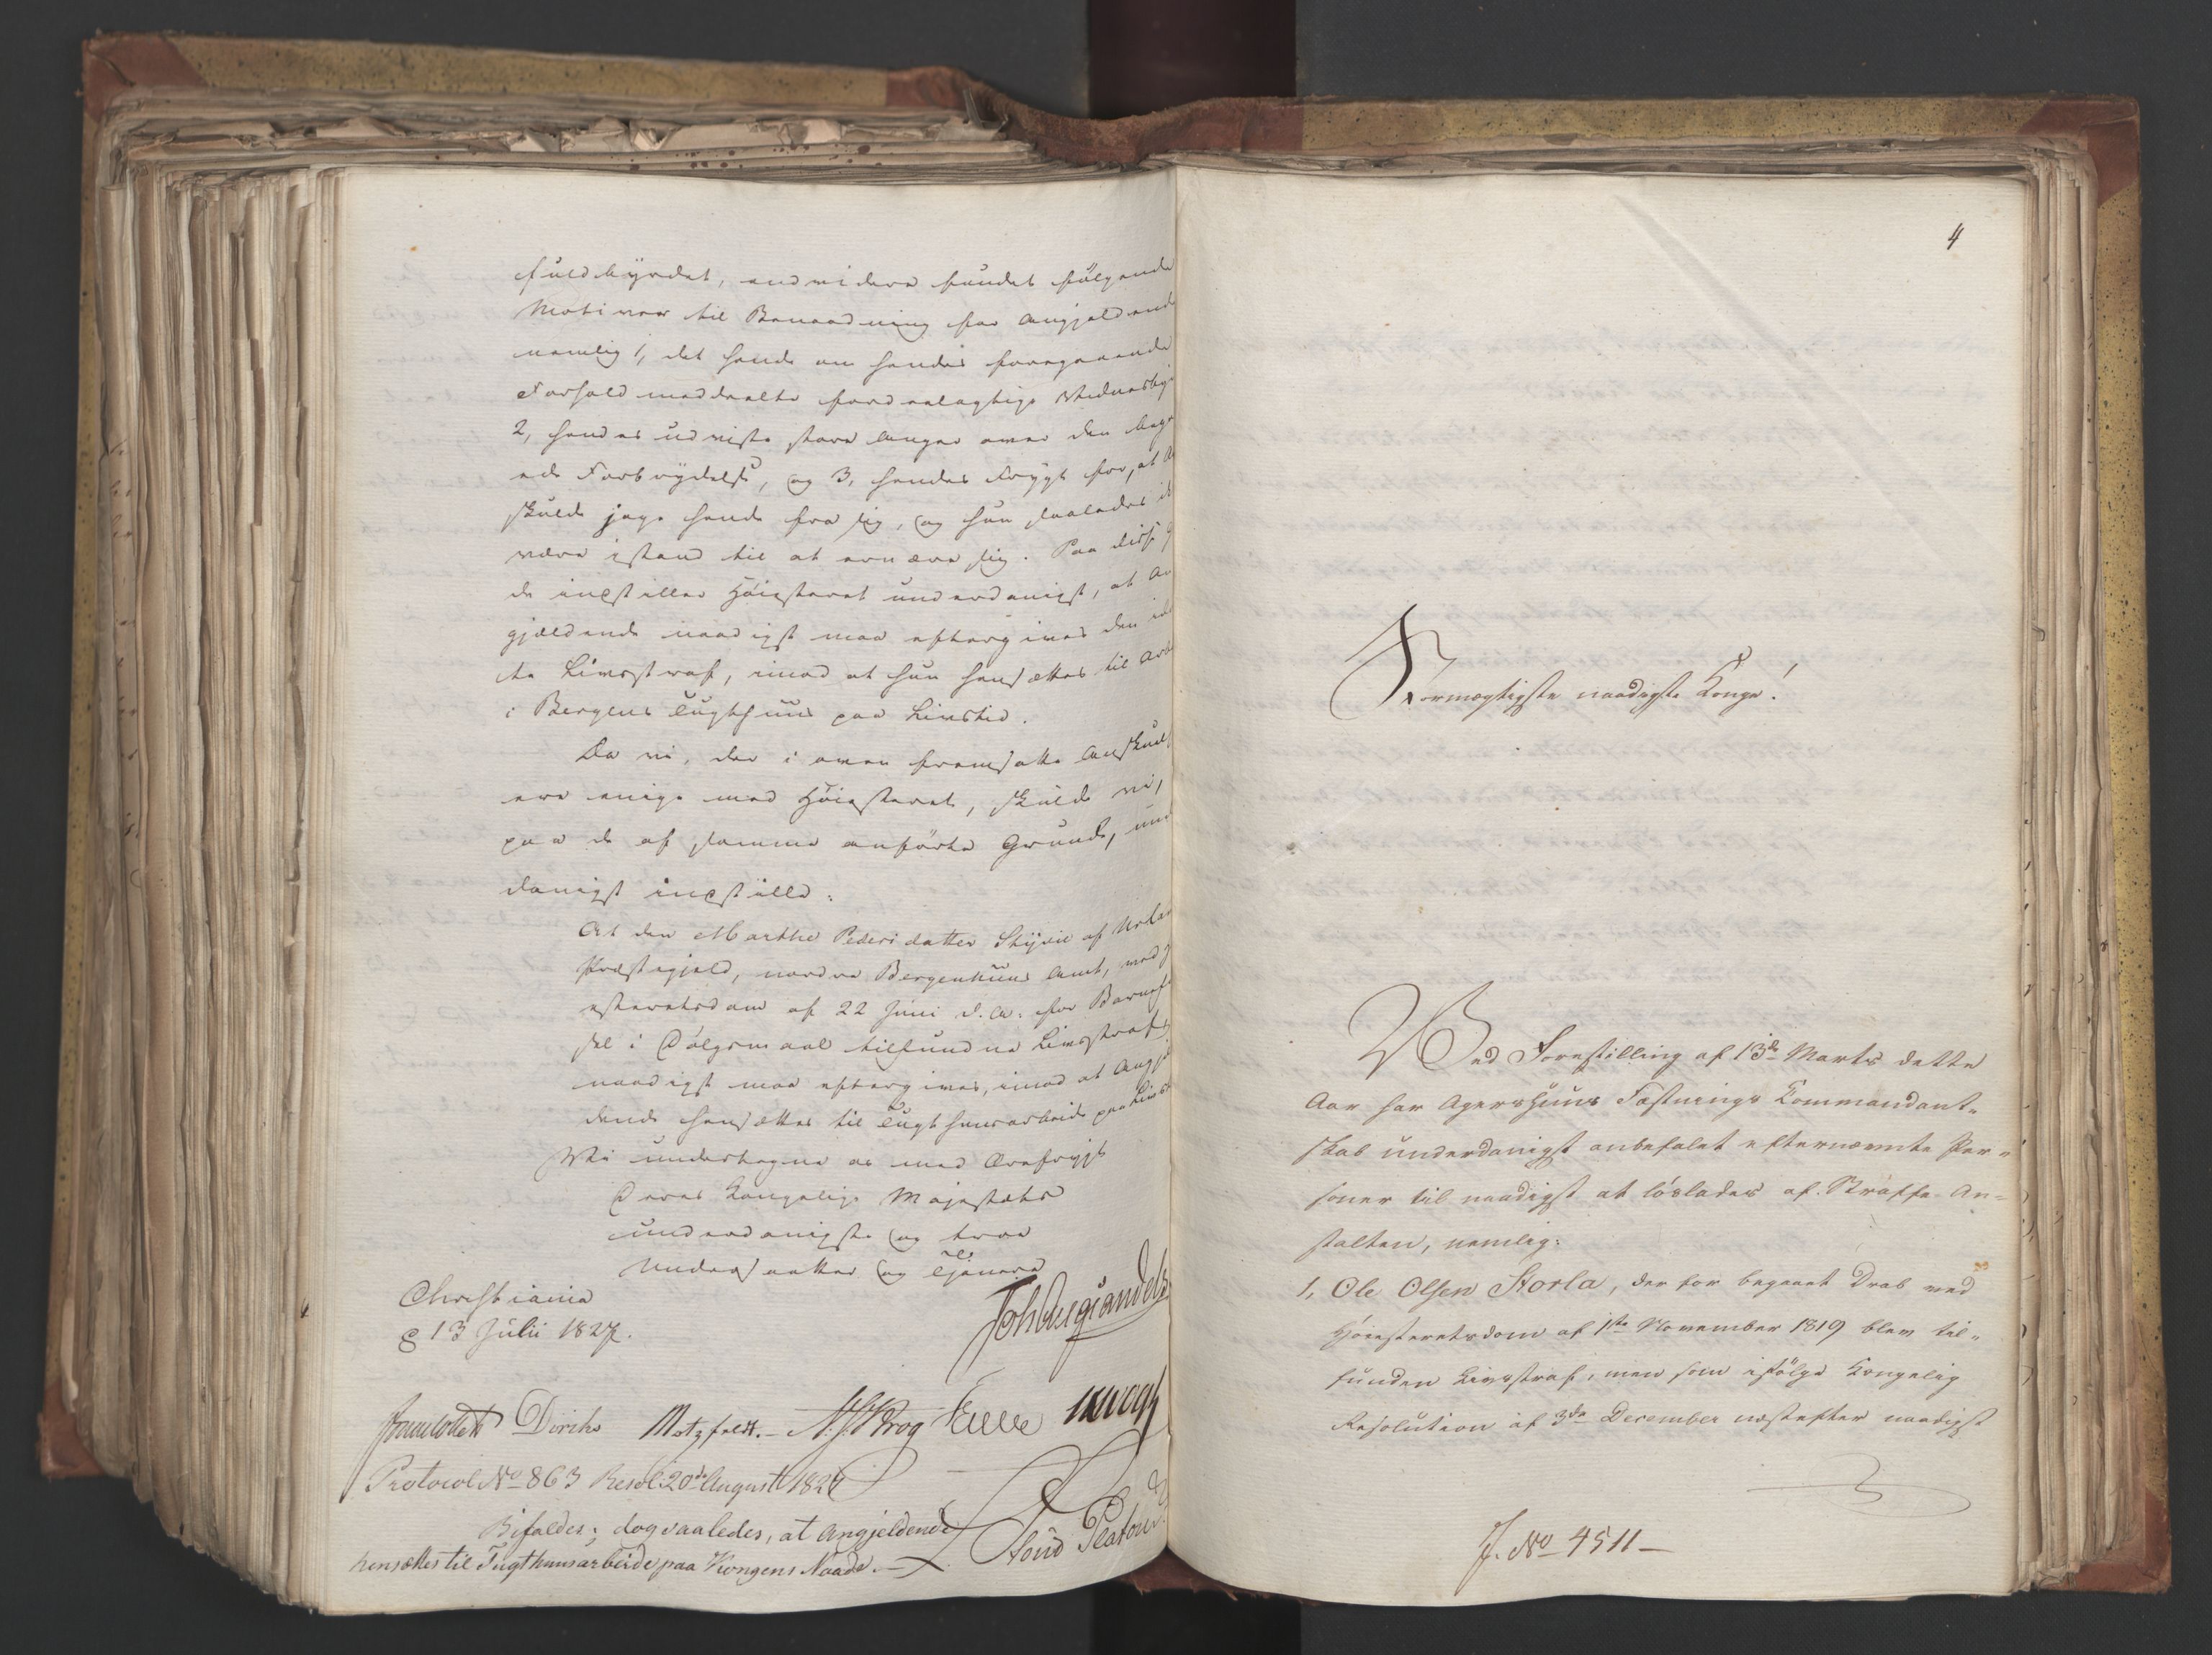 fuldbyrdet, endvidere fundet følgende
Motiver til Benaadning for Angjeldende
nemlig 1, det hende om hendes foregaaende
Forhold meddeelte fordeelagtige Vidnesby
2, hendes udviste store Anger over den begaa
ede Forbrydelse, og 3, hendes Frygt for, at
skulde jage hende fra sig, og hun saaledes ik
være istand til at ernære sig. Paa disse G
de indstiller Høiesteret underdanigst, at An
gjeldende naadigst maa eftergives den idøm
te Livsstraf, imod at hun hensættes til Arbe
i Bergens Tugthuus paa Livstid.
Da vi, der i oven fremsatte Anskuels
ere enige med Høiesteret, skulde vi,
paa de af samme anførte Grunde, und
danigst indstille:
At den Marthe Pedersdatter Styvie af Urla
Præstegjeld, nordre Bergenhuus Amt, ved H
iesteretsdom af 22 Juni d. A. for Barnefø
sel i Dølgsmaal tilfundne Livsstraf,
naadigst maa eftergives, imod at Angjel
dende hensættes til Tugthuusarbeide paa Livst
Vi undertegne os med Ærefrygt
Deres Kongelige Majestæts
underdanigste og troe
Undersaatter og Tjenere
Christiania
d 13 Julii 1827.
Diriks Motzfeldt. N. J. Krog
Protocol No 863 Resol: 20de August 1827
Bifaldes; dog saaledes, at Angjeldende
hensættes til Tugthuusarbeide paa Kongens Naade.
4
Stormægtigste naadigste Konge!
Ved Forestilling af 13de Marts dette
Aar har Agershuus Fæstnings Kommandant-
skab underdanigst anbefalet efternævnte Per-
soner til naadigst at løslades af Straffe An-
stalten, nemlig:
1, Ole Olsen Storla, der for begaaet Drab ved
Høiesteretsdom af 1ste November 1819 blev til-
funden Livsstraf, men som ifølge Kongelig
Resolution af 3de December næstefter naadigst
J. No 4511